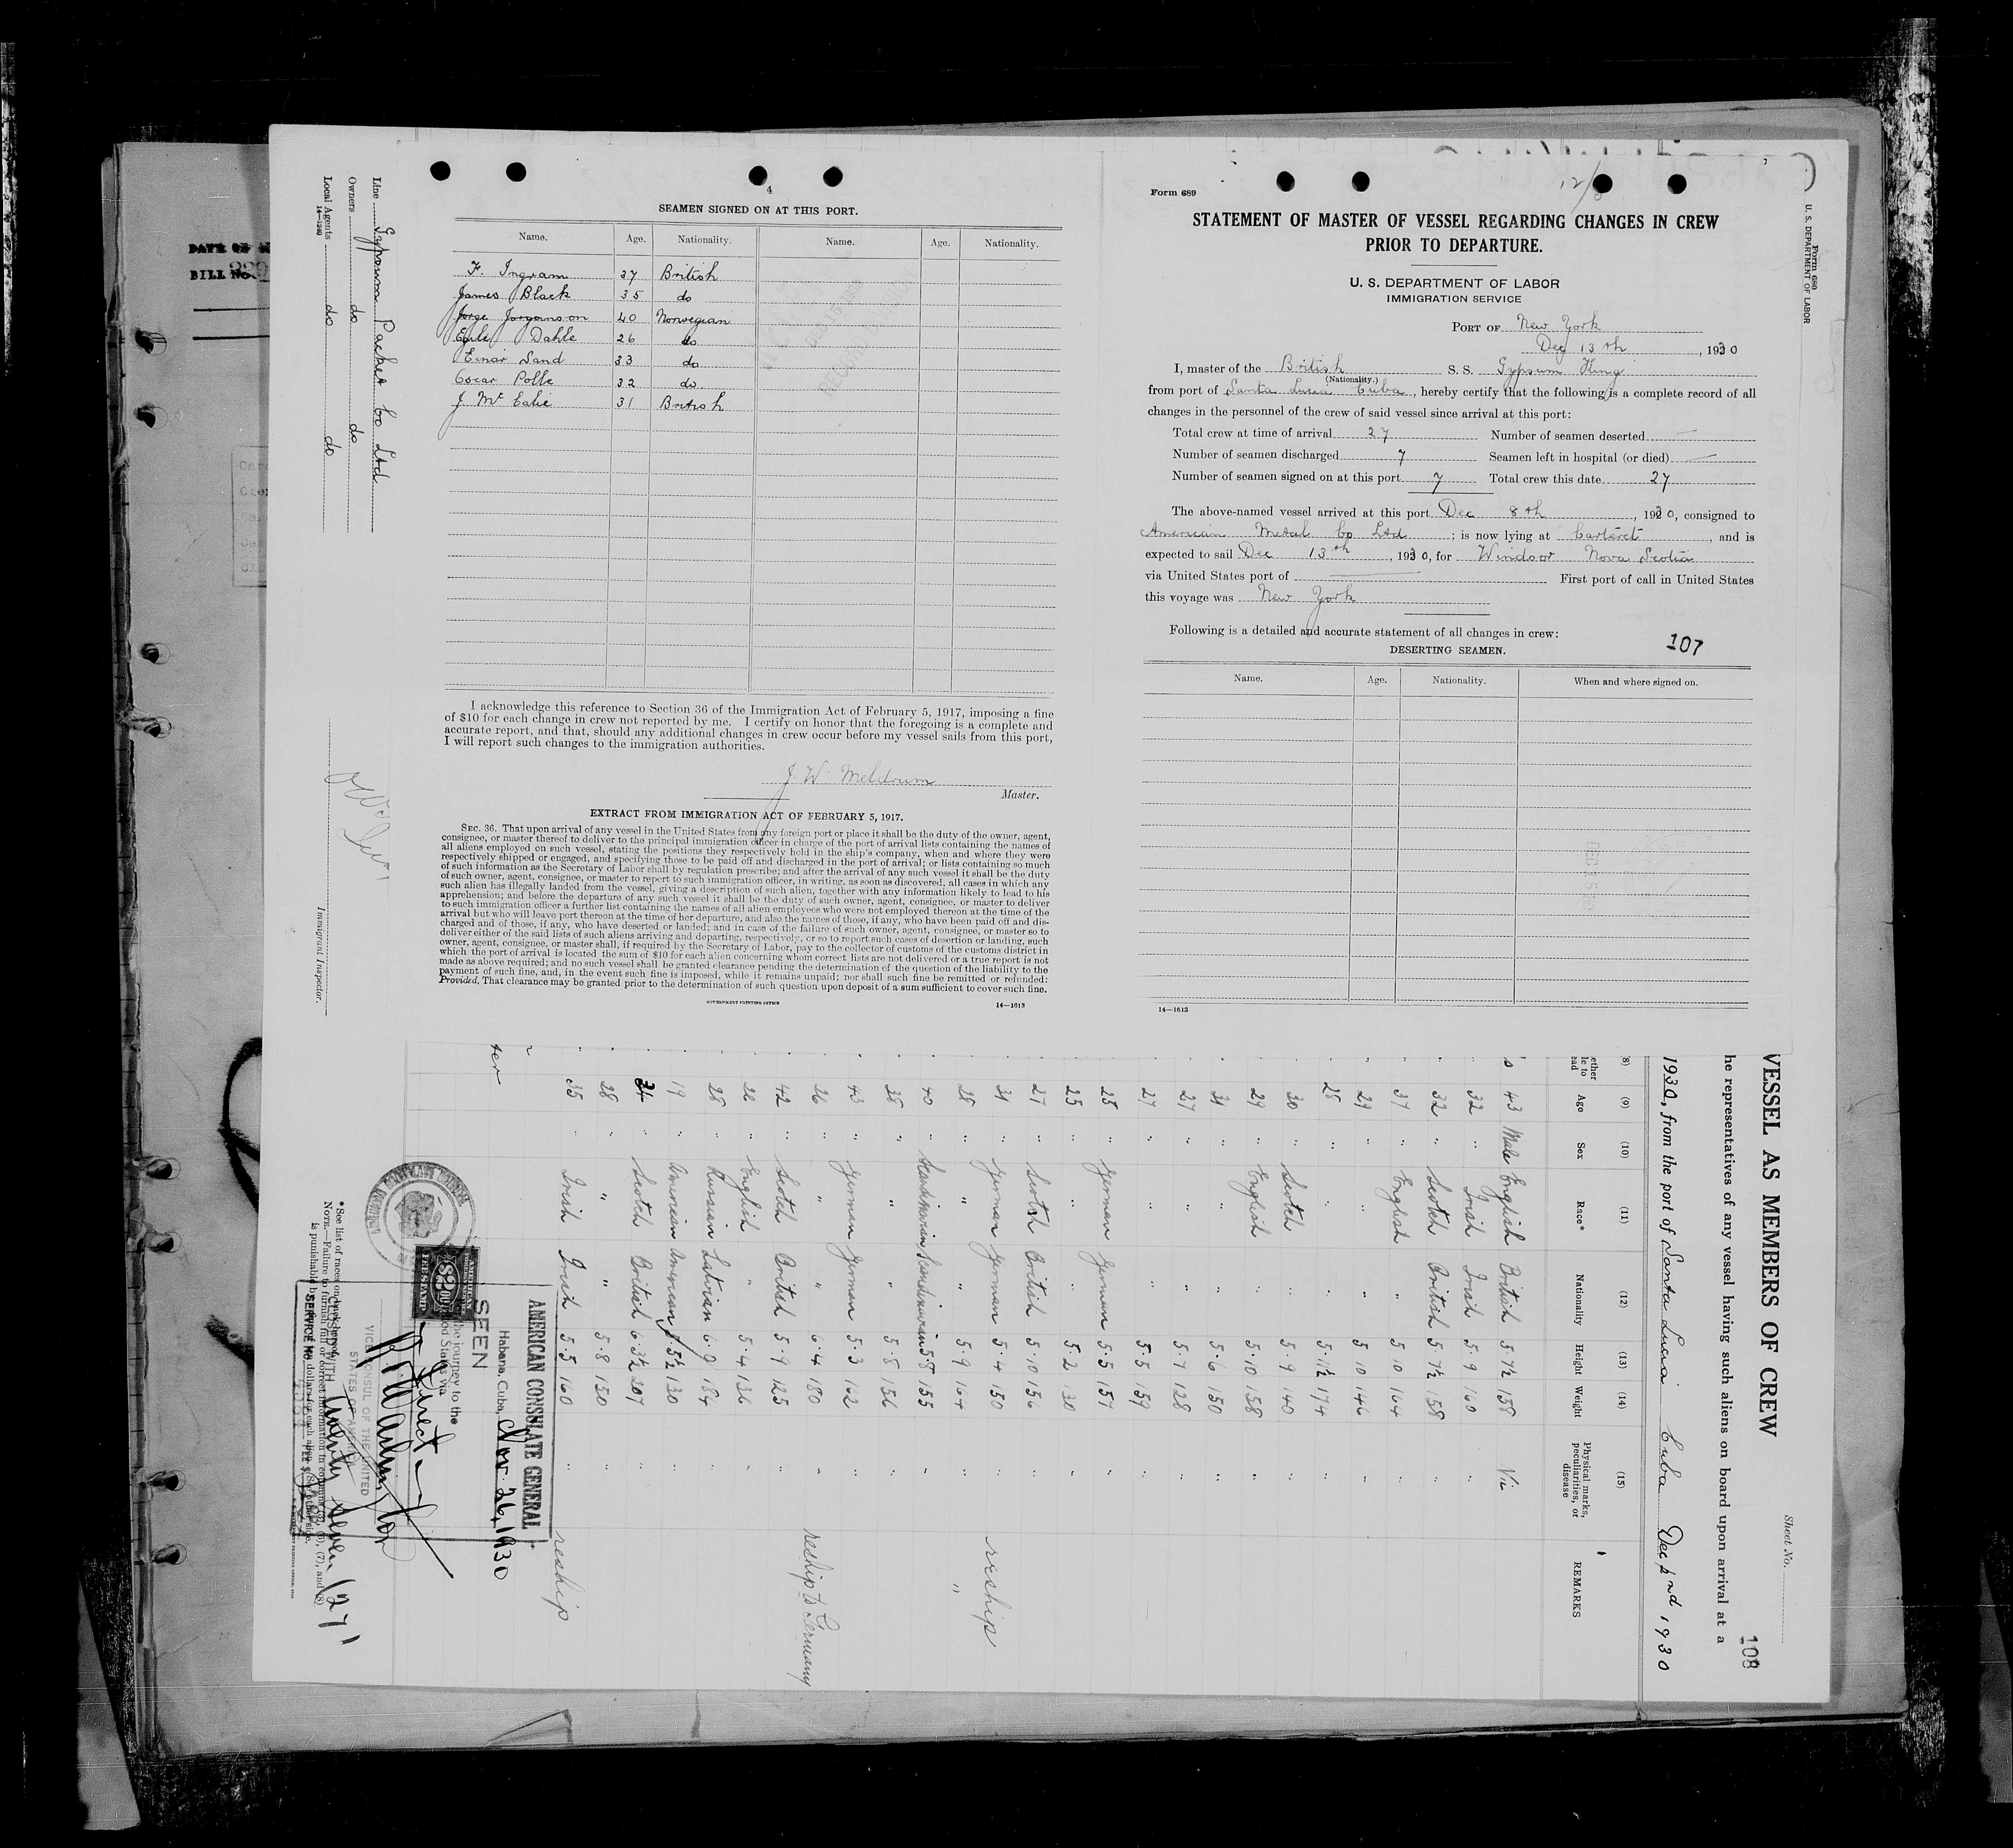 4
SEAMEN SIGNED ON AT THIS PORT.
Name. Age. Nationality. Name. Age. Nationality.
F. Ingram 37 British
James Black 35 do
Jorge Jorganson 40 Norwegian
Dahle 26 do
Einar Sand 33 do
Oscar Polle 32 do.
J. Mc 31 British
I acknowledge this reference to Section 36 of the Immigration Act of February 5, 1917, imposing a fine
of $10 for each change in crew not reported by me. I certify on honor that the foregoing is a complete and
accurate report, and that, should any additional changes in crew occur before my vessel sails from this port,
I will report such changes to the immigration authorities.
J. W. Meldrum
Master.
EXTRACT FROM IMMIGRATION ACT OF FEBRUARY 5, 1917.
SEC. 36. That upon arrival of any vessel in the United States from any foreign port or place it shall be the duty of the owner, agent,
consignee, or master thereof to deliver to the principal immigration officer in charge of the port of arrival lists containing the names of
all aliens employed on such vessel, stating the positions they respectively hold in the ship's company, when and where they were
respectively shipped or engaged, and specifying those to be paid off and discharged in the port of arrival; or lists containing so much
of such information as the Secretary of Labor shall by regulation prescribe; and after the arrival of any such vessel it shall be the duty
of such owner, agent, consignee, or master to report to such immigration officer, in writing, as soon as discovered, all cases in which any
such alien has illegally landed from the vessel, giving a description of such alien, together with any information likely to lead to his
apprehension; and before the departure of any such vessel it shall be the duty of such owner, agent, consignee, or master to deliver
to such immigration officer a further list containing the names of all alien employees who were not employed thereon at the time of the
arrival but who will leave port thereon at the time of her departure, and also the names of those, if any, who have been paid off and dis-
charged and of those, if any, who have deserted or landed; and in case of the failure of such owner, agent, consignee, or master so to
deliver either of the said lists of such aliens arriving and departing, respectively, or so to report such cases of desertion or landing, such
owner, agent, consignee, or master shall, if required by the Secretary of Labor, pay to the collector of customs of the customs district in
which the port of arrival is located the sum of $10 for each alien concerning whom correct lists are not delivered or a true report is not
made as above required; and no such vessel shall be granted clearance pending the determination of the question of the liability to the
payment of such fine, and, in the event such fine is imposed, while it remains unpaid; nor shall such fine be remitted or refunded:
Provided, That clearance may be granted prior to the determination of such question upon deposit of a sum sufficient to cover such fine.
GOVERNMENT PRINTING OFFICE 14—1613
Form 689
STATEMENT OF MASTER OF VESSEL REGARDING CHANGES IN CREW
PRIOR TO DEPARTURE.
U. S. DEPARTMENT OF LABOR
IMMIGRATION SERVICE
PORT OF New York
Dec 13th, 1930
I, master of the British S. S. Gypsum King
(Nationality.)
from port of Santa Lucia Cuba, hereby certify that the following is a complete record of all
changes in the personnel of the crew of said vessel since arrival at this port:
Total crew at time of arrival 27 Number of seamen deserted —
Number of seamen discharged 7 Seamen left in hospital (or died) —
Number of seamen signed on at this port 7 Total crew this date 27
The above-named vessel arrived at this port Dec 8th, 1930, consigned to
American Metal Co Ltd; is now lying at Carteret, and is
expected to sail Dec 13th, 1930, for Windsor Nova Scotia
via United States port of — First port of call in United States
this voyage was New York
Following is a detailed and accurate statement of all changes in crew:
107
DESERTING SEAMEN.
Name. Age. Nationality. When and where signed on.
14—1613
Line Gypsum Packet Co Ltd
Owners do do
Local Agents do do
14—1240
Immigrant Inspector.
Form 680
U. S. DEPARTMENT OF LABOR
DATE OF
BILL NO.
Sheet No.
108
VESSEL AS MEMBERS OF CREW
he representatives of any vessel having such aliens on board upon arrival at a
1930, from the port of Santa Lucia Cuba Dec 2nd, 1930
(8) (9) (10) (11) (12) (13) (14) (15)
Age Sex Race* Nationality Height Weight Physical marks, peculiarities, or disease REMARKS
43 Male English British 5.7½ 158
32 " Irish Irish 5.9 160 "
32 " Scotch British 5.7½ 158 "
37 " English " 5 10 164 "
29 " " " 5 10 146 "
28 " " " 5.11½ 174 "
30 " Scotch " 5.9 140 "
29 " English " 5.10 158 "
31 " " " 5.6 150 "
27 " " " 5.7 128 "
27 " " " 5.5 159 "
28 " German German 5.5 157 "
25 " " " 5.2 130 "
27 " Scotch British 5.10 156 "
31 " German German 5.4 150 " reship
28 " " " 5.9 164 " "
40 " Scandinavian Scandinavian 5.8 155 "
38 " " " 5.8 156 "
43 " German German 5.3 162 "
26 " " " 6.4 180 " reship to Germany
42 " Scotch British 5.9 125 "
22 " English " 5.4 136 "
28 " Russian Latvian 6.0 184 "
19 " American American 5.5½ 130 "
" Scotch British 6 3½ 207 "
28 " " " 5.8 150 "
35 " Irish Irish 5.5 160 " reship
AMERICAN CONSULATE GENERAL
Habana, Cuba, Nov. 26, 1930
SEEN
the journey to the
Direct
VICE CONSUL OF THE UNITED
STATES OF AMERICA
Twenty Seven (27)
SERVICE NO.
AMERICAN
$2.00
FEE STAMP
*See list of races on back hereof.
NOTE.—Failure to furnish full or correct information in columns (6), (7), and (8)
is punishable by a fine of ten dollars for each alien. See other side.